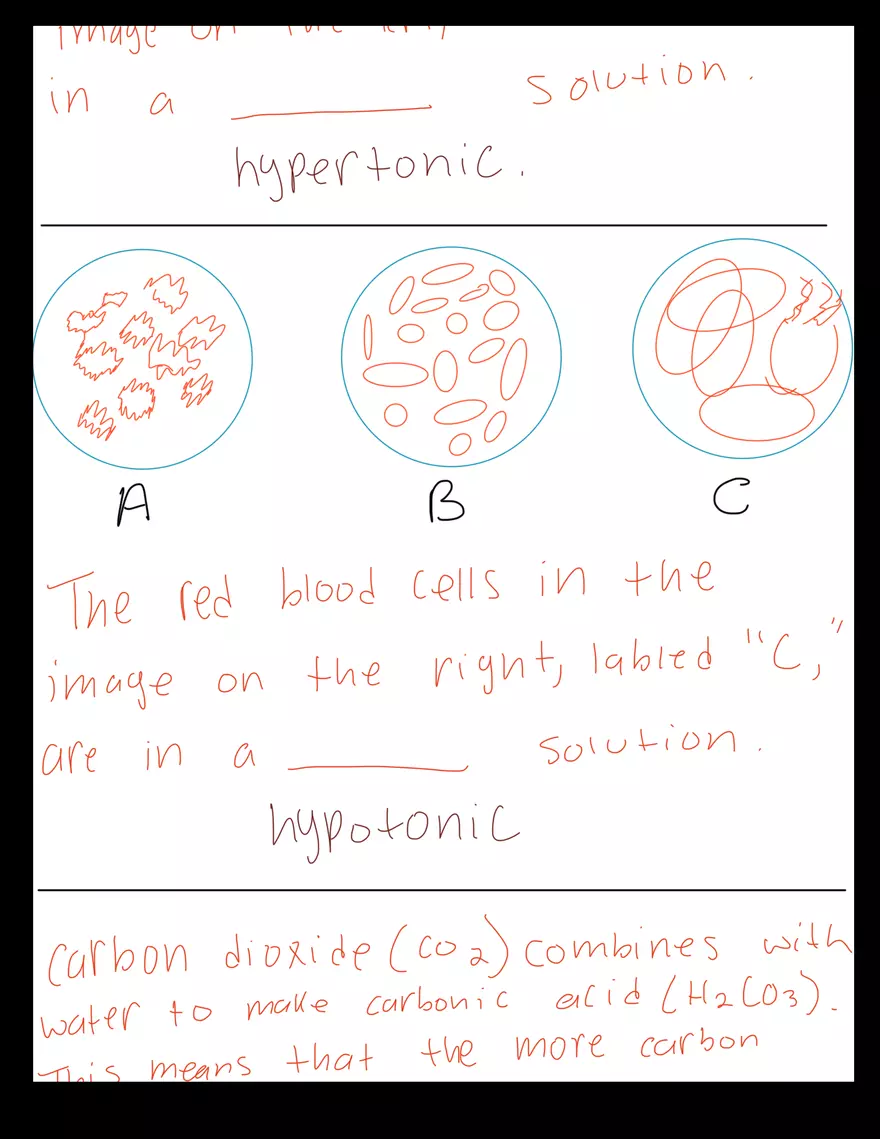 image on the left,
in a ________ solution.
hypertonic.
A B C
The red blood cells in the
image on the right, labled "C,"
are in a ________ solution.
hypotonic
Carbon dioxide (CO2) combines with
water to make carbonic acid (H2CO3).
This means that the more carbon